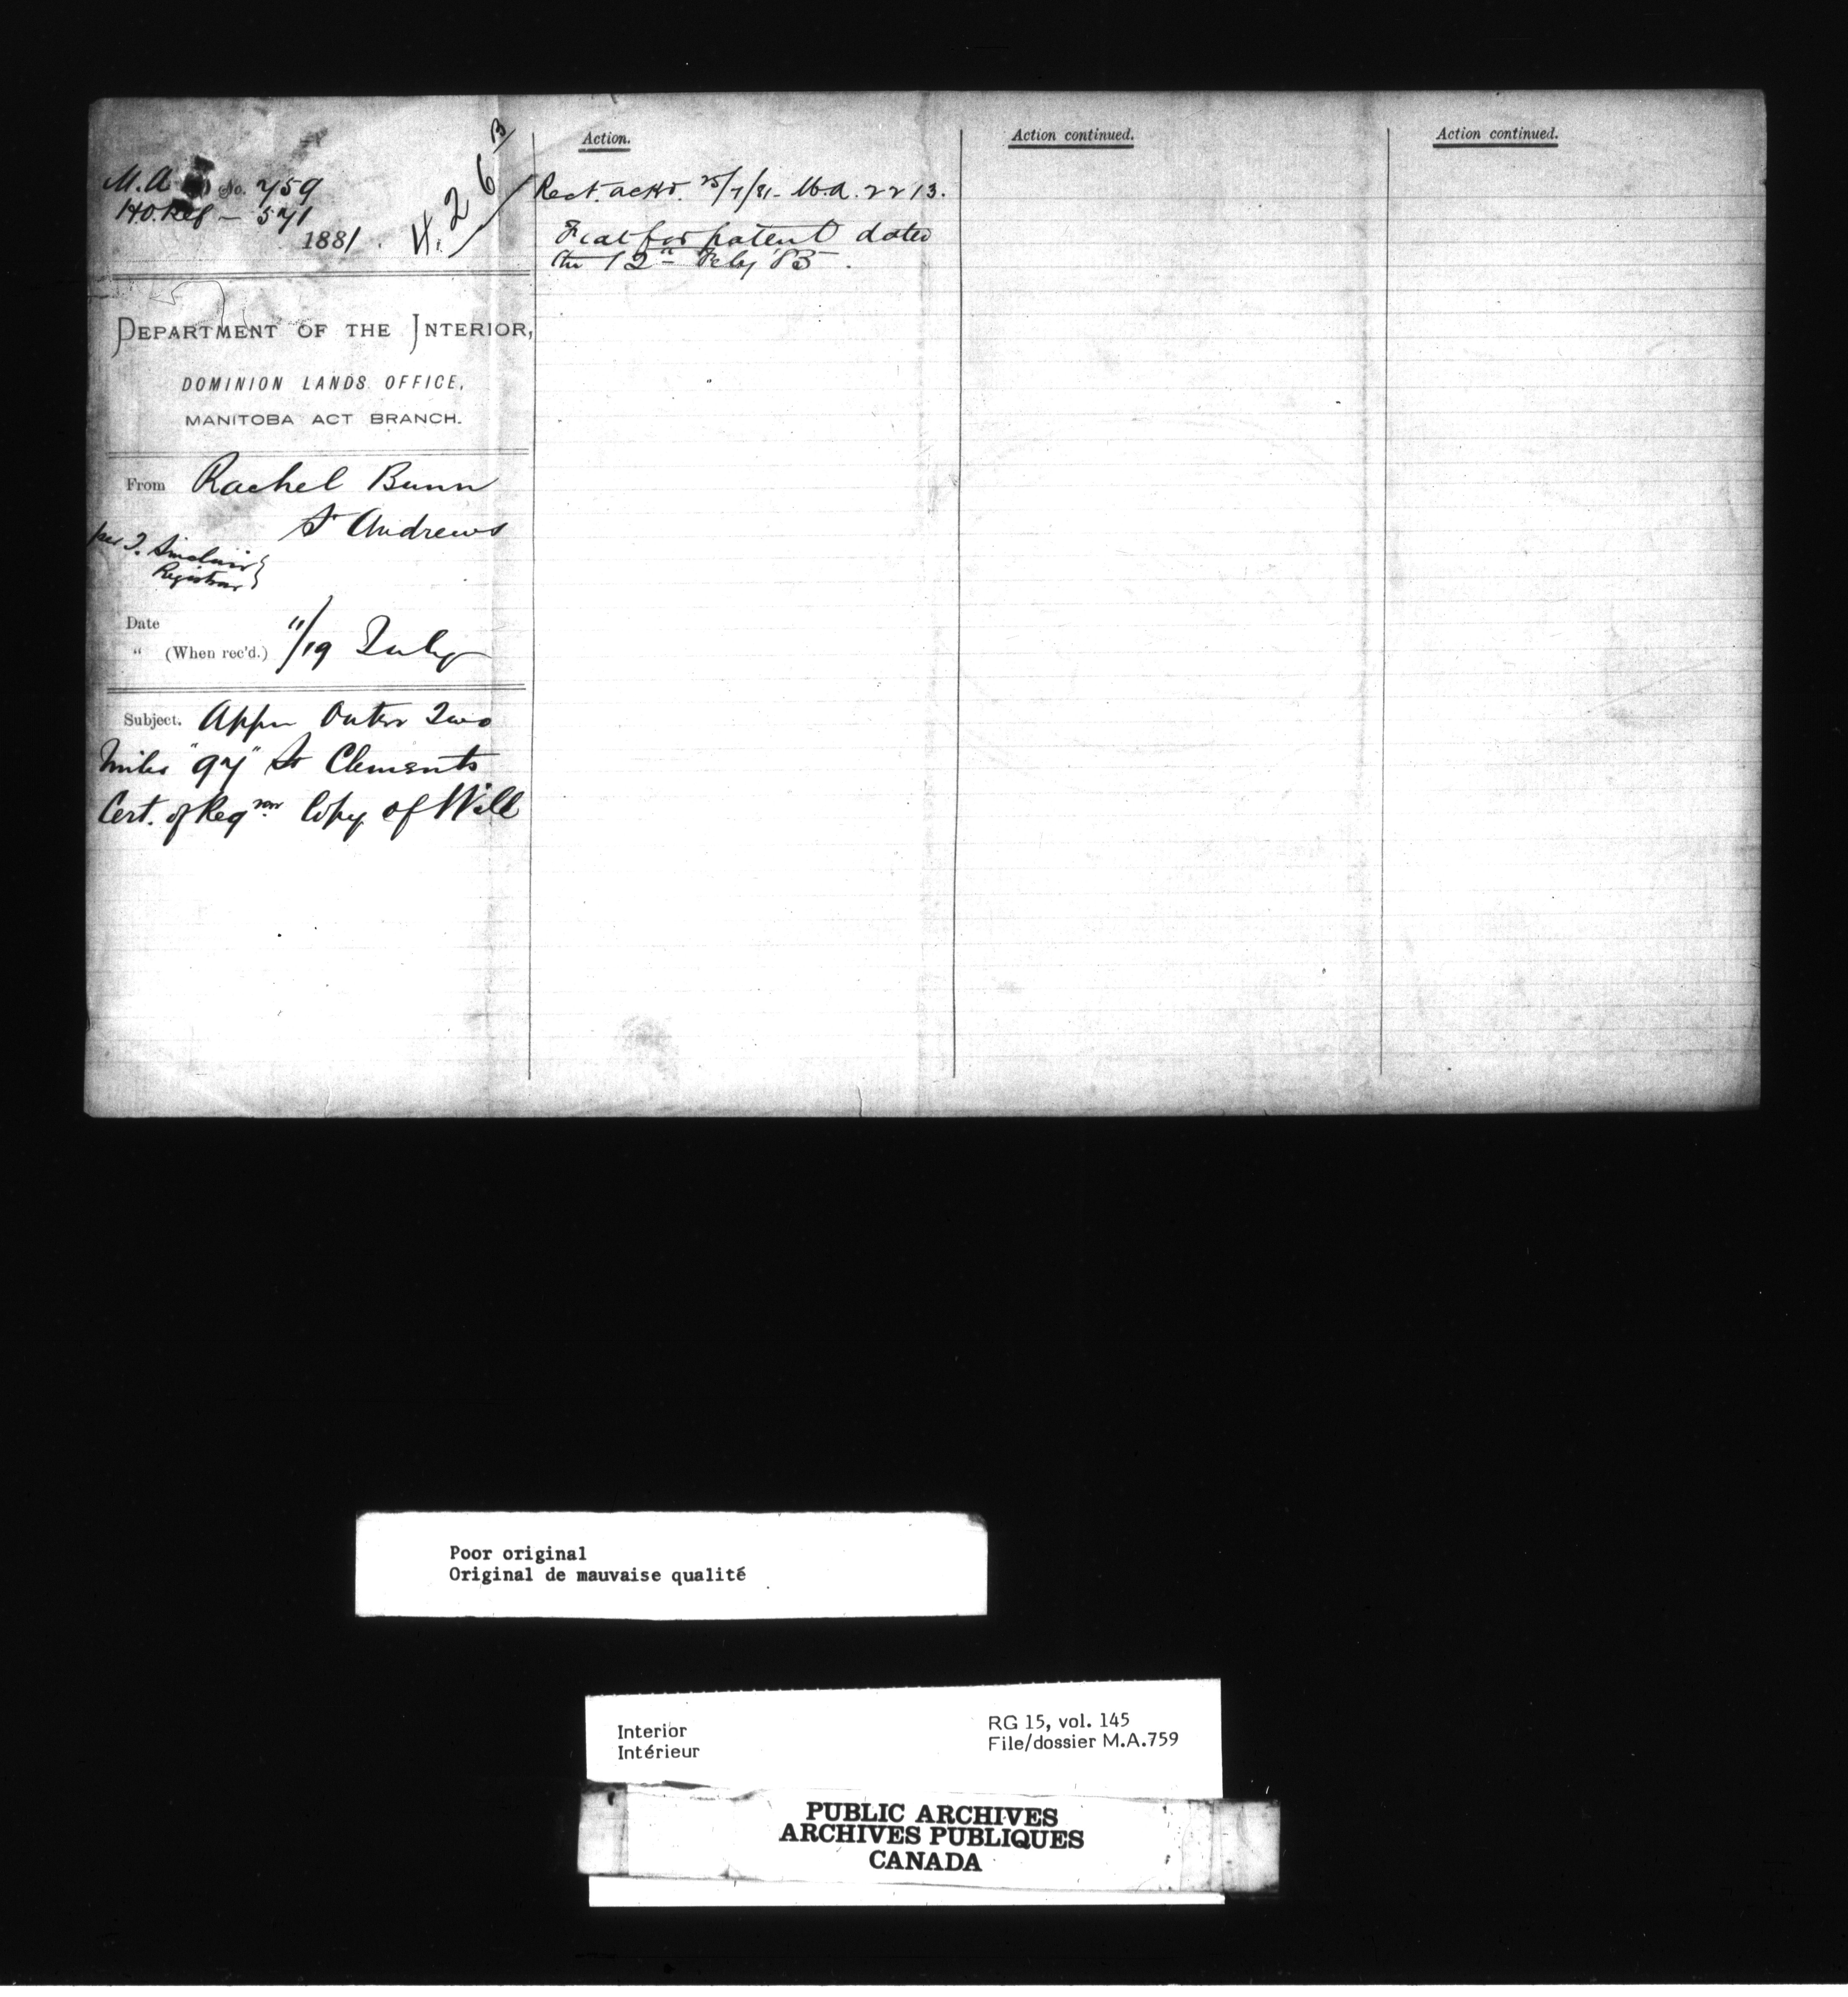 M.A. No. 759
H.O. Ref — 571
1881.
H. 26 B
DEPARTMENT OF THE INTERIOR,
DOMINION LANDS OFFICE,
MANITOBA ACT BRANCH.
From Rachel Bunn
St Andrews
per T. Sinclair
Registrar
Date
" (When rec'd.) 11/19 July
Subject. Appn Outer Two
Miles "97" St Clements
Cert. of Regrar Copy of Will
Action.
Rect. ackd. 25/7/81 - M.A. 2213.
Fiat for patent dated
the 12th Feby '83.
Action continued.
Action continued.
Poor original
Original de mauvaise qualité
Interior
Intérieur
RG 15, vol. 145
File/dossier M.A.759
PUBLIC ARCHIVES
ARCHIVES PUBLIQUES
CANADA